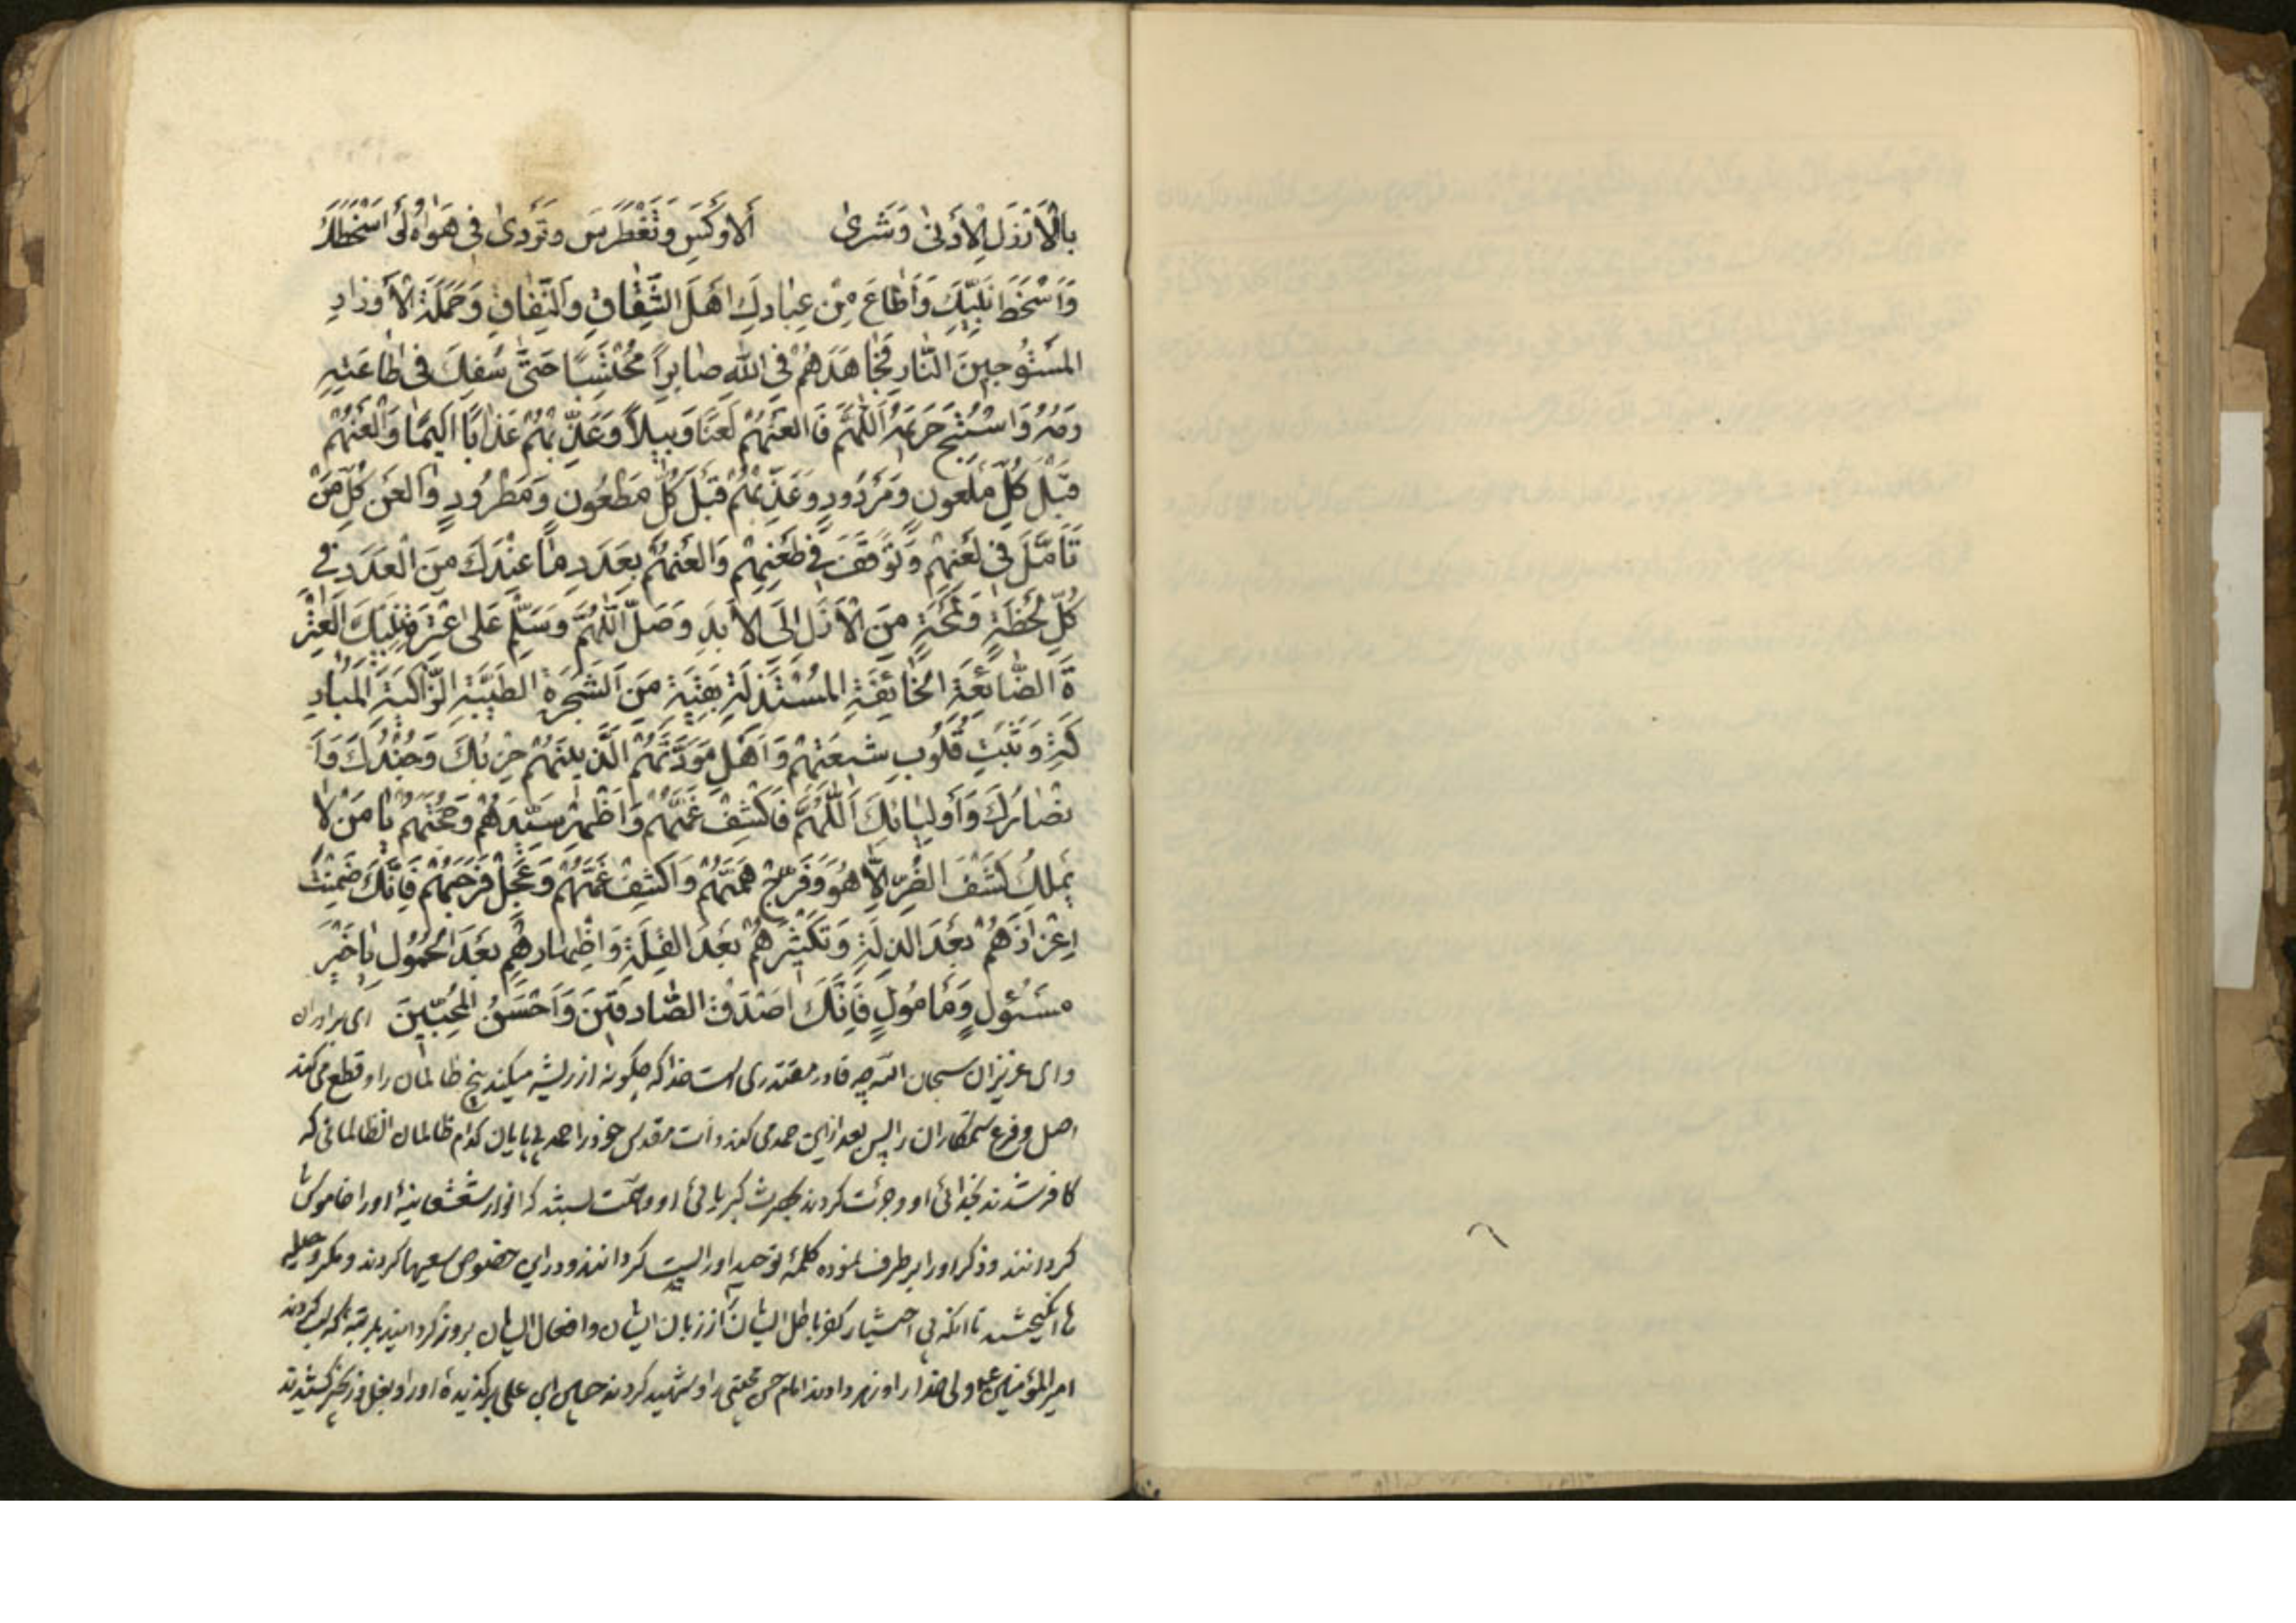 بِالْأَرْذَلِ الْأَدْنیٰ وَشَریٰ الاوکَسِ وَتَغَطْرَسَ وَتَرَدّیٰ فی هَواهُ وَاَسْخَطَكَ
وَاَسْخَطَ نَبِیَّكَ وَاَطاعَ مِنْ عِبادِكَ اَهْلَ الشِّقاقِ وَالنِّفاقِ وَحَمَلَةَ الْأَوْزارِ
المُسْتَوْجِبینَ النّارِ فَجاهَدَهُمْ فِی اللهِ صابِراً مُحْتَسِبًا حَتّیٰ سُفِكَ فی طاعَتِهِ
دَمُهُ وَاسْتُبیحَ حَریمُهُ اَللّٰهُمَّ فَالعَنْهُمْ لَعْنًا وَبیلاً وَعَذِّبْهُمْ عَذابًا اَلیمًا وَالْعَنْهُمْ
قَبْلَ کُلِّ مَلعونٍ وَمَرْدُودٍ وَعَذِّبْهُمْ قَبْلَ کُلِّ مَطْعُونٍ وَمَطْرُودٍ وَالعَنْ کُلَّ مَنْ
تَأَمَّلَ فی لَعْنِهِمْ وَتَوَقَّفَ فی طَعْنِهِمْ وَالعَنْهُمْ بِعَدَدِ ما عِنْدَكَ مِنَ الْعَدَدِ فی
کُلِّ لَحْظَةٍ وَلَمْحَةٍ مِنَ الْأَزَلِ اِلَی الْأَبَدِ وَصَلِّ اللّٰهُمَّ وَسَلِّمْ عَلیٰ عِتْرَةِ نَبِیِّكَ العِتْرَ
ةِ الضّائِعَةِ الخائِفَةِ المُسْتَذَلَّةِ بَقِیَّةٍ مِنَ الشَّجَرَةِ الطَیِّبَةِ الزّاکِیَةِ الْمُبارَ
کَةِ وَثَبِّتْ قُلُوبَ شیعَتِهِمْ وَاَهْلِ مَوَدَّتِهُمْ الَّذینَهُمْ حِزْبُكَ وَجُنْدُكَ وَاَ
نْصارُكَ وَاَولِیائِكَ اَللّٰهُمَّ فَاکْشِفْ غَمَّهُمْ وَاَظْهِرْ سَیِّدَهُمْ وَحُجَّتَهُمْ یا مَنْ لا
یَمْلِكُ کَشْفَ الضُّرِّ اِلاّ هُوَ وَفَرِّجْ هَمَّهُمْ وَاکْشِفْ غَمَّهُمْ وَعَجِّلْ فَرَجَهُمْ فَاِنَّكَ ضَمِنْتَ
اِعْزازَهُمْ بَعْدَ الذِلَّةِ وَتَکْثیرَهُمْ بَعْدَ القِلَّةِ وَاِظْهارَهُمْ بَعْدَ الخُمُولِ یا خَیْرَ
مَسْئُولٍ وَمَأمُولٍ فَاِنَّكَ اَصْدَقُ الصّادِقینَ وَاَحْسَنُ المُحِبّینَ ای برادران
وای عزیزان سبحان الله چه قادر مقتدری است خدا که چگونه از ریشه میکند بیخ ظالمان را و قطع می کند
اصل و فرع ستمکاران را پس بعد از این حمد می کند ذات مقدس خود را حمد بی پایان کدام ظالمان الظالمانی که
کافر شدند بخدائی او و جرئت کردند بحضرت کبریائی او و همّت بستند که انوار شعشعانیهٔ او را خاموش
کردانند و ذکر او را برطرف نموده کلمهٔ توحید او را پست کردانند و در این خصوص سعیها کردند و مکر و حیله
ها انگیختند تا آنکه بی اختیار کفر باطل ایشان از زبان ایشان و افعال ایشان بروز کردانید بمرتبهٔ که
امیرالمؤمنین ع ولی خدا را و زهر دادند امام حسن مجتبی را و شهید کردند حسین ابن علی برکزیدهٔ او را و بغل و زنجیر کشیدند